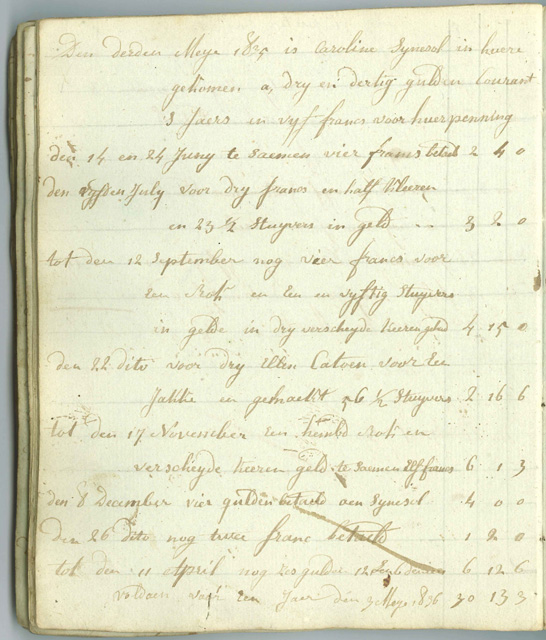 Den derden Meye 1835 is Caroline Symesol in huere
gekomen a, dry en dertig gulden Courant
's Jaers en vyf francs voor huerpenning
den 14 en 24 Juny te saemen vier francs betaelt 2 4 0
den July voor dry francs en half kleeren
en 23 ½ Stuyvers in geld .. 3 2 0
tot den 12 September nog vier francs voor
Een Rok en Een en vyftig Stuyvers
in gelde in dry verscheyde keeren geld 4 15 0
den 22 dito voor dry Ellen Catoen voor Een
Jakke en gemaekt 56 ½ Stuyvers 2 16 6
tot den 17 November Een hembd Rok en
verscheyde keeren geld te saemen Elf francs 6 1 3
den 8 December vier gulden betaeld aen Symesol 4 0 0
den 26 dito nog twee franc betaeld 1 2 0
tot den 11 April nog zes gulden 12 6 6 12 6
voldaen voor Een Jaer den 3 Meye 1836 30 13 3